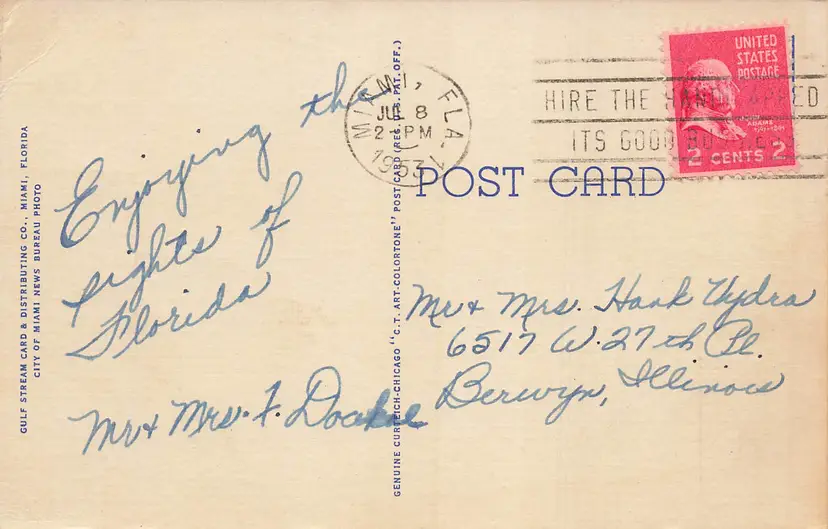 GULF STREAM CARD & DISTRIBUTING CO., MIAMI, FLORIDA
CITY OF MIAMI NEWS BUREAU PHOTO
Enjoying the
sights of
Florida
Mr & Mrs. F.
GENUINE CURTEICH-CHICAGO "C.T. ART-COLORTONE" POST CARD (REG. U.S. PAT. OFF.)
MIAMI, FLA.
JUL 8
2 - PM
1953
HIRE THE HANDICAPPED
ITS GOOD BUSINESS
UNITED
STATES
POSTAGE
ADAMS
2 CENTS 2
POST CARD
Mr & Mrs. Hank Vydra
6517 W. 27th Pl.
Berwyn, Illinois